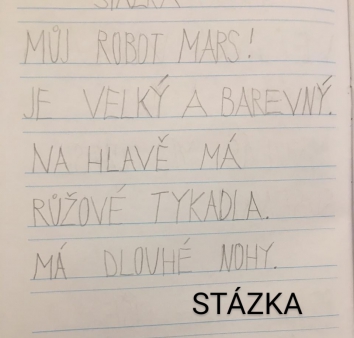 MŮJ ROBOT MARS!
JE VELKÝ A BAREVNÝ.
NA HLAVĚ MÁ
RŮŽOVÉ TYKADLA.
MÁ DLOUHÉ NOHY.
STÁZKA